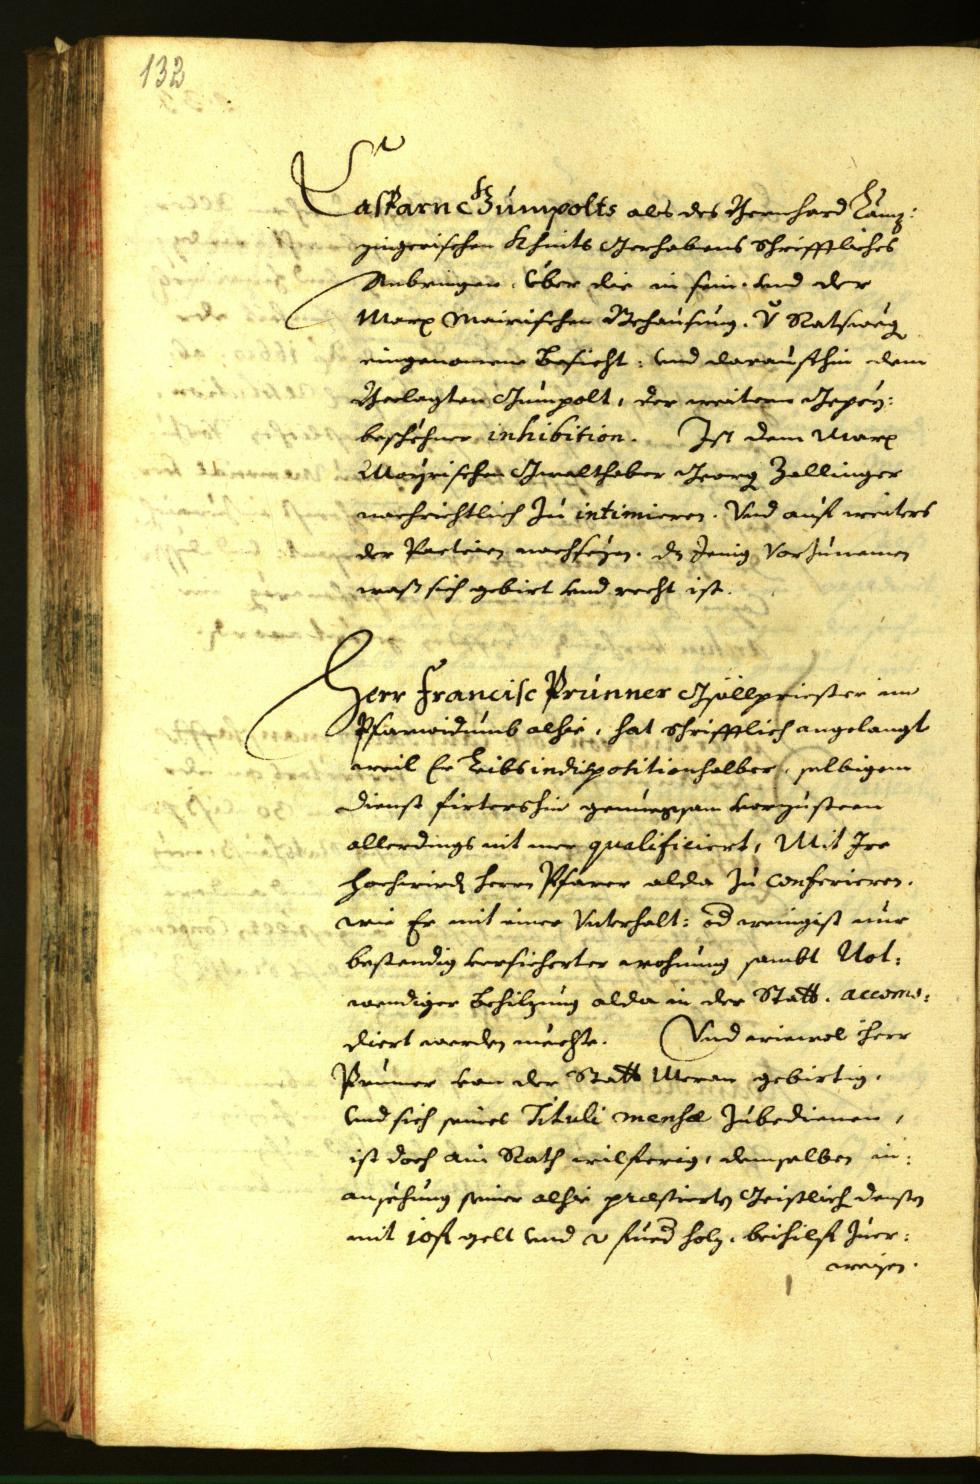 132
Casparn Gumpolts als des Bernhard Lamp:
zingerischen Khints Gerhabens Schrifftliches
Anbringen, über die in sein: und der
Marx Mairischen Behausung
eingenomene Besicht: und daraufhin dem
Beclagten Gumpolt, der weitern
beschehner inhibition. Ist dem Marx
Mayrischen Gwalthaber Georg Zallinger
nachrichtlich zu intimieren. Und auf weiters
der Parteien nachsezen, dz Jenig vorzunemen
was sich gebirt und recht ist.
Herr Francisc Prunner Gsöllpriester im
Pfarrwidumb alhie, hat Schrifftlich angelangt
weil Er Leibs indispositionhalber, selbigem
dienst firtershin genuegsam vorzusteen
allerdings nit mer qualificiert, Mit Ire
hochwird herrn Pfarer alda zu conferieren.
wie Er mit einer Unterhalt: od wenigist nur
bestendig versicherter wohnung sambt Not:
wendiger Behilzung alda in der Statt. accomo:
diert werden mechte. Und wiewol herr
Prunner von der Statt Meran gebirtig,
und sich seines Tituli mensæ zubedienen,
ist doch ain Rath wilferig, demselben in:
ansechung seiner alhie præstierten Geistlich densten
mit 10 fl gelt und 2 fued holz, beihilf zuer:
weisen.